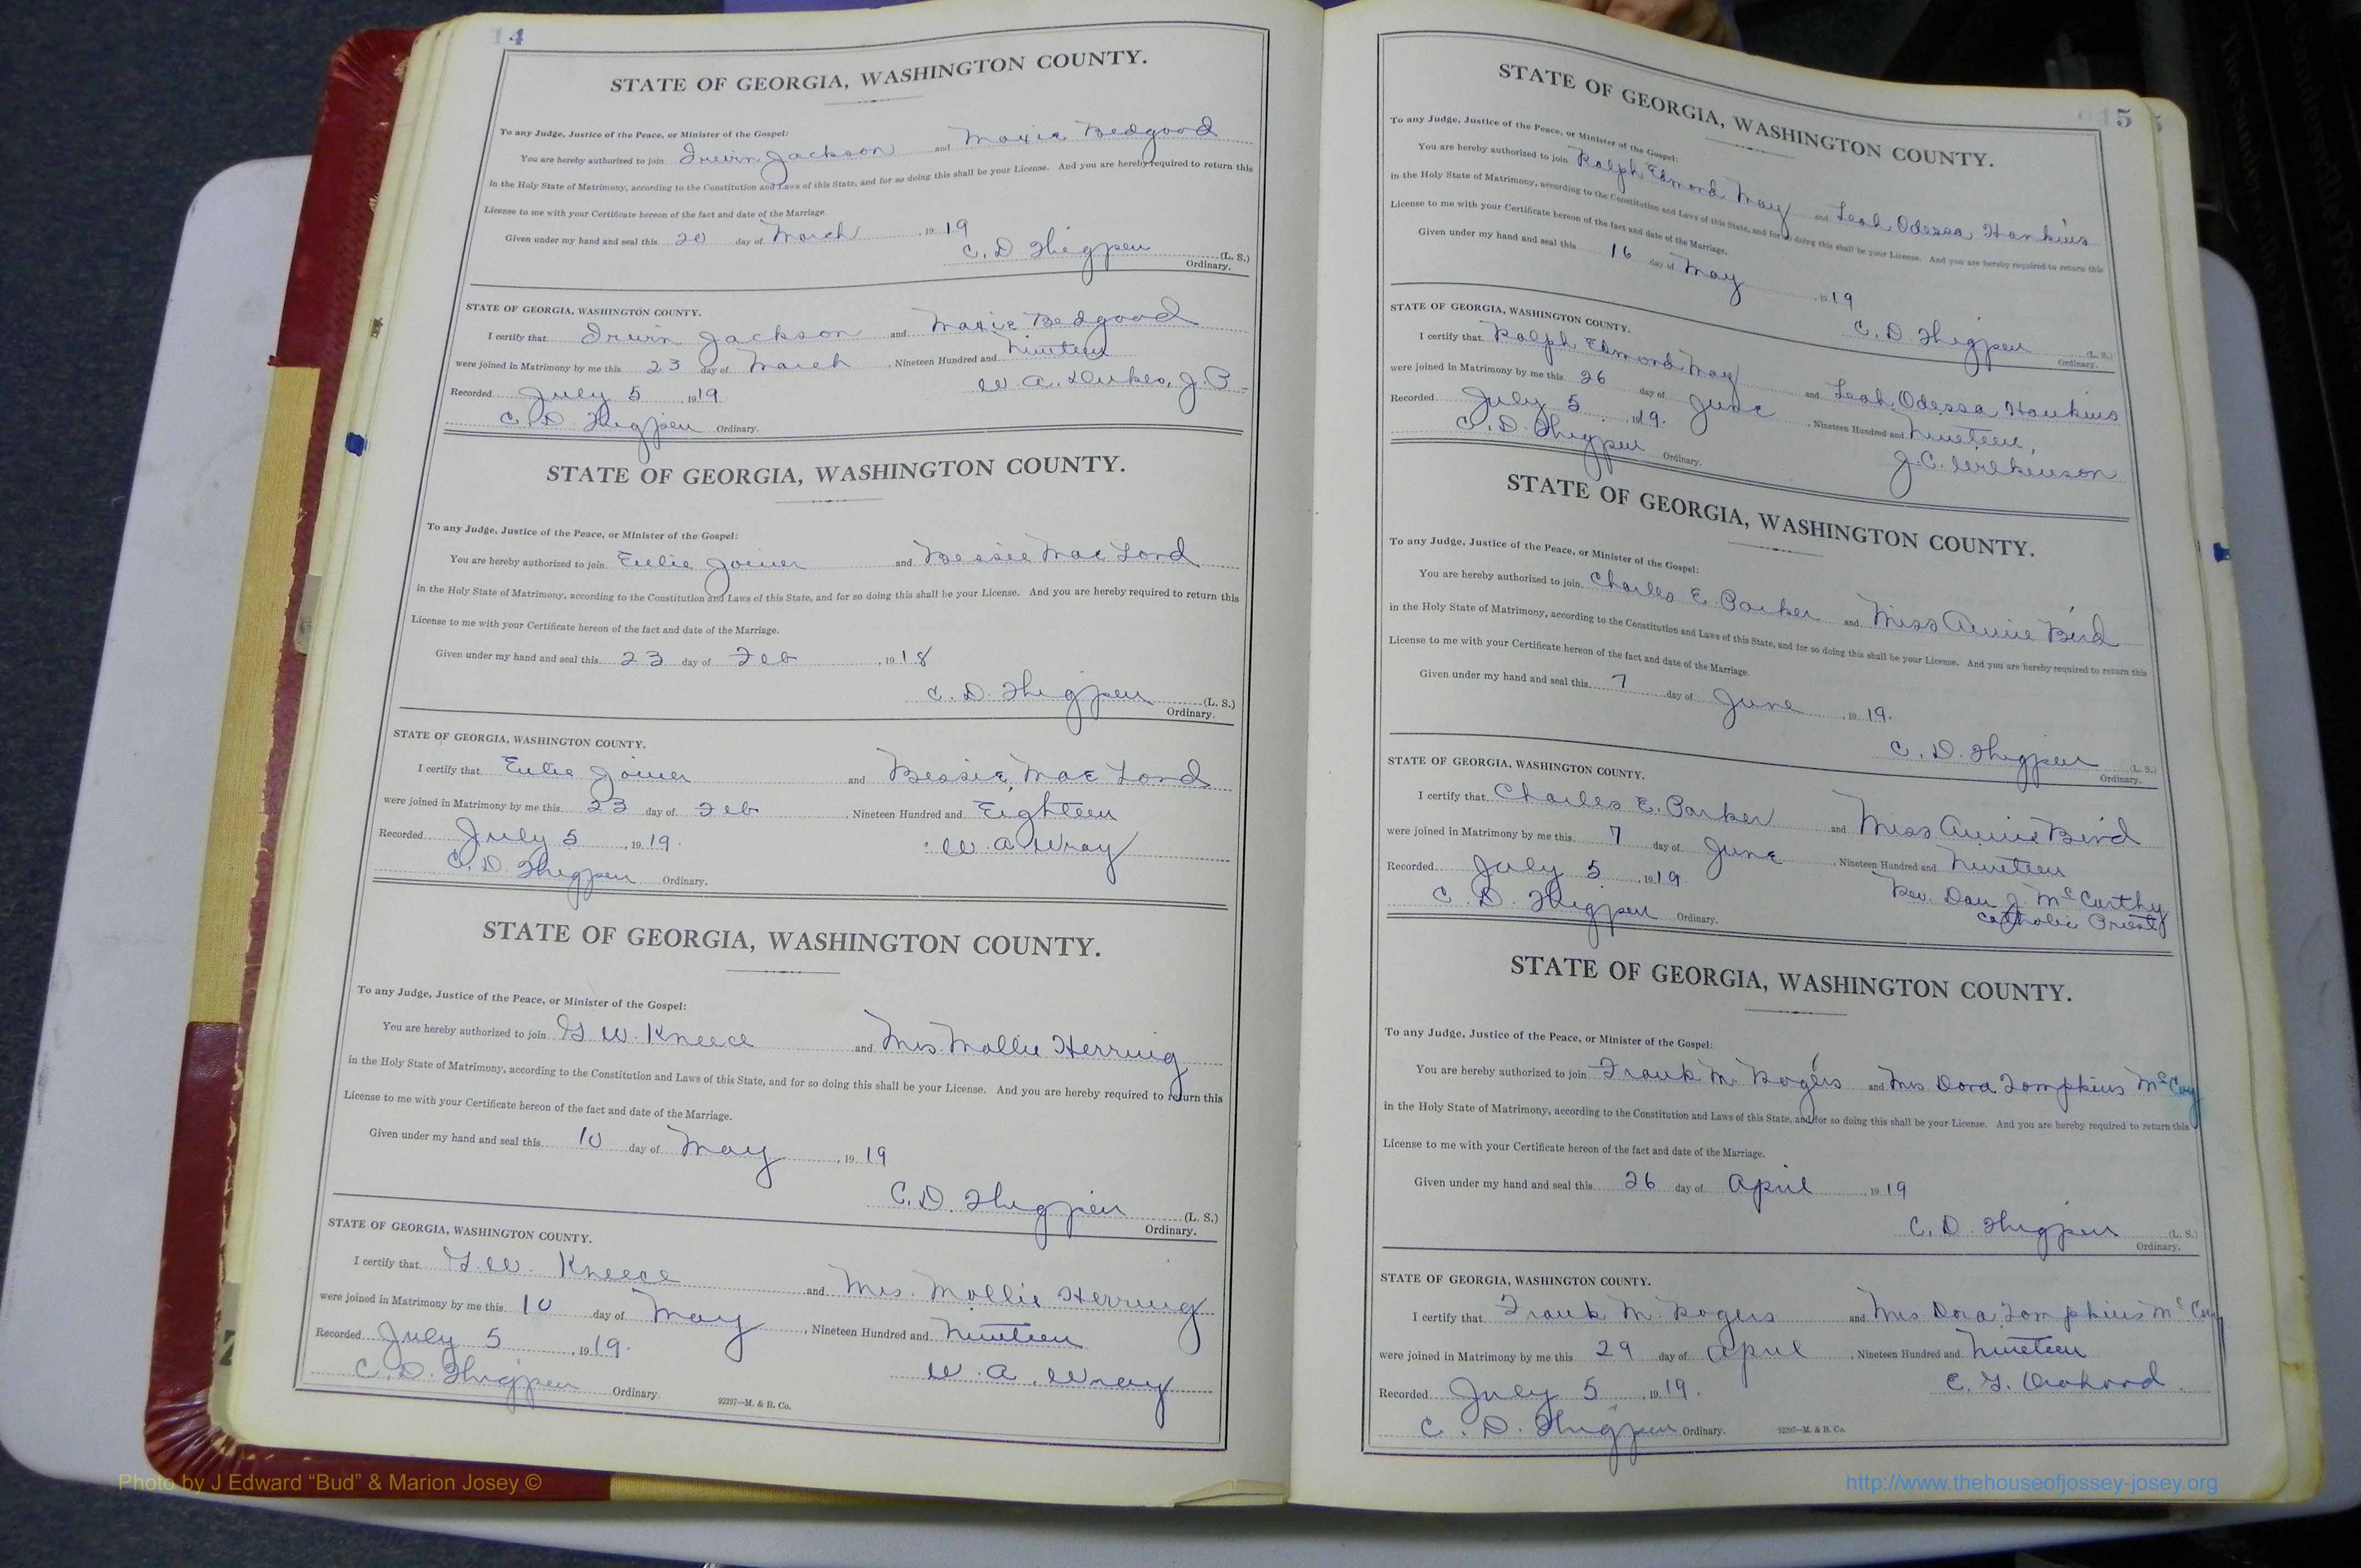 14
STATE OF GEORGIA, WASHINGTON COUNTY.
To any Judge, Justice of the Peace, or Minister of the Gospel:
You are hereby authorized to join Irwin Jackson and Maxie Bedgood
in the Holy State of Matrimony, according to the Constitution and Laws of this State, and for so doing this shall be your License. And you are hereby required to return this
License to me with your Certificate hereon of the fact and date of the Marriage.
Given under my hand and seal this 20 day of March , 1919
C. D. Thigpen (L. S.)
Ordinary.
STATE OF GEORGIA, WASHINGTON COUNTY.
I certify that Irwin Jackson and Maxie Bedgood
were joined in Matrimony by me this 23 day of March , Nineteen Hundred and Nineteen
Recorded July 5 , 1919 W. A. Dukes, J. P.
C. D. Thigpen Ordinary.
STATE OF GEORGIA, WASHINGTON COUNTY.
To any Judge, Justice of the Peace, or Minister of the Gospel:
You are hereby authorized to join Eulie Joiner and Bessie Mae Lord
in the Holy State of Matrimony, according to the Constitution and Laws of this State, and for so doing this shall be your License. And you are hereby required to return this
License to me with your Certificate hereon of the fact and date of the Marriage.
Given under my hand and seal this 23 day of Feb , 1918
C. D. Thigpen (L. S.)
Ordinary.
STATE OF GEORGIA, WASHINGTON COUNTY.
I certify that Eulie Joiner and Bessie Mae Lord
were joined in Matrimony by me this 23 day of Feb , Nineteen Hundred and Eighteen
Recorded July 5 , 1919. W. A. Wray
C. D. Thigpen Ordinary.
STATE OF GEORGIA, WASHINGTON COUNTY.
To any Judge, Justice of the Peace, or Minister of the Gospel:
You are hereby authorized to join G W. Kneece and Mrs. Mollie Herring
in the Holy State of Matrimony, according to the Constitution and Laws of this State, and for so doing this shall be your License. And you are hereby required to return this
License to me with your Certificate hereon of the fact and date of the Marriage.
Given under my hand and seal this 10 day of May , 1919
C. D. Thigpen (L. S.)
Ordinary.
STATE OF GEORGIA, WASHINGTON COUNTY.
I certify that G. W. Kneece and Mrs. Mollie Herring
were joined in Matrimony by me this 10 day of May , Nineteen Hundred and Nineteen
Recorded July 5 , 1919. W. A. Wray
C. D. Thigpen Ordinary.
92297—M. & B. Co.
15
STATE OF GEORGIA, WASHINGTON COUNTY.
To any Judge, Justice of the Peace, or Minister of the Gospel:
You are hereby authorized to join Ralph Edmond May and Leah Odessa Hankins
in the Holy State of Matrimony, according to the Constitution and Laws of this State, and for so doing this shall be your License. And you are hereby required to return this
License to me with your Certificate hereon of the fact and date of the Marriage.
Given under my hand and seal this 16 day of May , 1919
C. D. Thigpen (L. S.)
Ordinary.
STATE OF GEORGIA, WASHINGTON COUNTY.
I certify that Ralph Edmond May and Leah Odessa Hankins
were joined in Matrimony by me this 26 day of June , Nineteen Hundred and Nineteen
Recorded July 5 , 1919. J. C. Wilkinson
C. D. Thigpen Ordinary.
STATE OF GEORGIA, WASHINGTON COUNTY.
To any Judge, Justice of the Peace, or Minister of the Gospel:
You are hereby authorized to join Charles E. Parker and Miss Annie Bird
in the Holy State of Matrimony, according to the Constitution and Laws of this State, and for so doing this shall be your License. And you are hereby required to return this
License to me with your Certificate hereon of the fact and date of the Marriage.
Given under my hand and seal this 7 day of June , 1919.
C. D. Thigpen (L. S.)
Ordinary.
STATE OF GEORGIA, WASHINGTON COUNTY.
I certify that Charles E. Parker and Miss Annie Bird
were joined in Matrimony by me this 7 day of June , Nineteen Hundred and Nineteen
Recorded July 5 , 1919 Rev. Dan J. McCarthy
C. D. Thigpen Ordinary. Catholic Priest
STATE OF GEORGIA, WASHINGTON COUNTY.
To any Judge, Justice of the Peace, or Minister of the Gospel:
You are hereby authorized to join Frank M. Rogers and Mrs Dora Tompkins McCoy
in the Holy State of Matrimony, according to the Constitution and Laws of this State, and for so doing this shall be your License. And you are hereby required to return this
License to me with your Certificate hereon of the fact and date of the Marriage.
Given under my hand and seal this 26 day of April , 1919
C. D. Thigpen (L. S.)
Ordinary.
STATE OF GEORGIA, WASHINGTON COUNTY.
I certify that Frank M. Rogers and Mrs Dora Tompkins McCoy
were joined in Matrimony by me this 29 day of April , Nineteen Hundred and Nineteen
Recorded July 5 , 1919.
C. D. Thigpen Ordinary.
92297—M. & B. Co.
Photo by J Edward “Bud” & Marion Josey ©
http://www.thehouseofjossey-josey.org